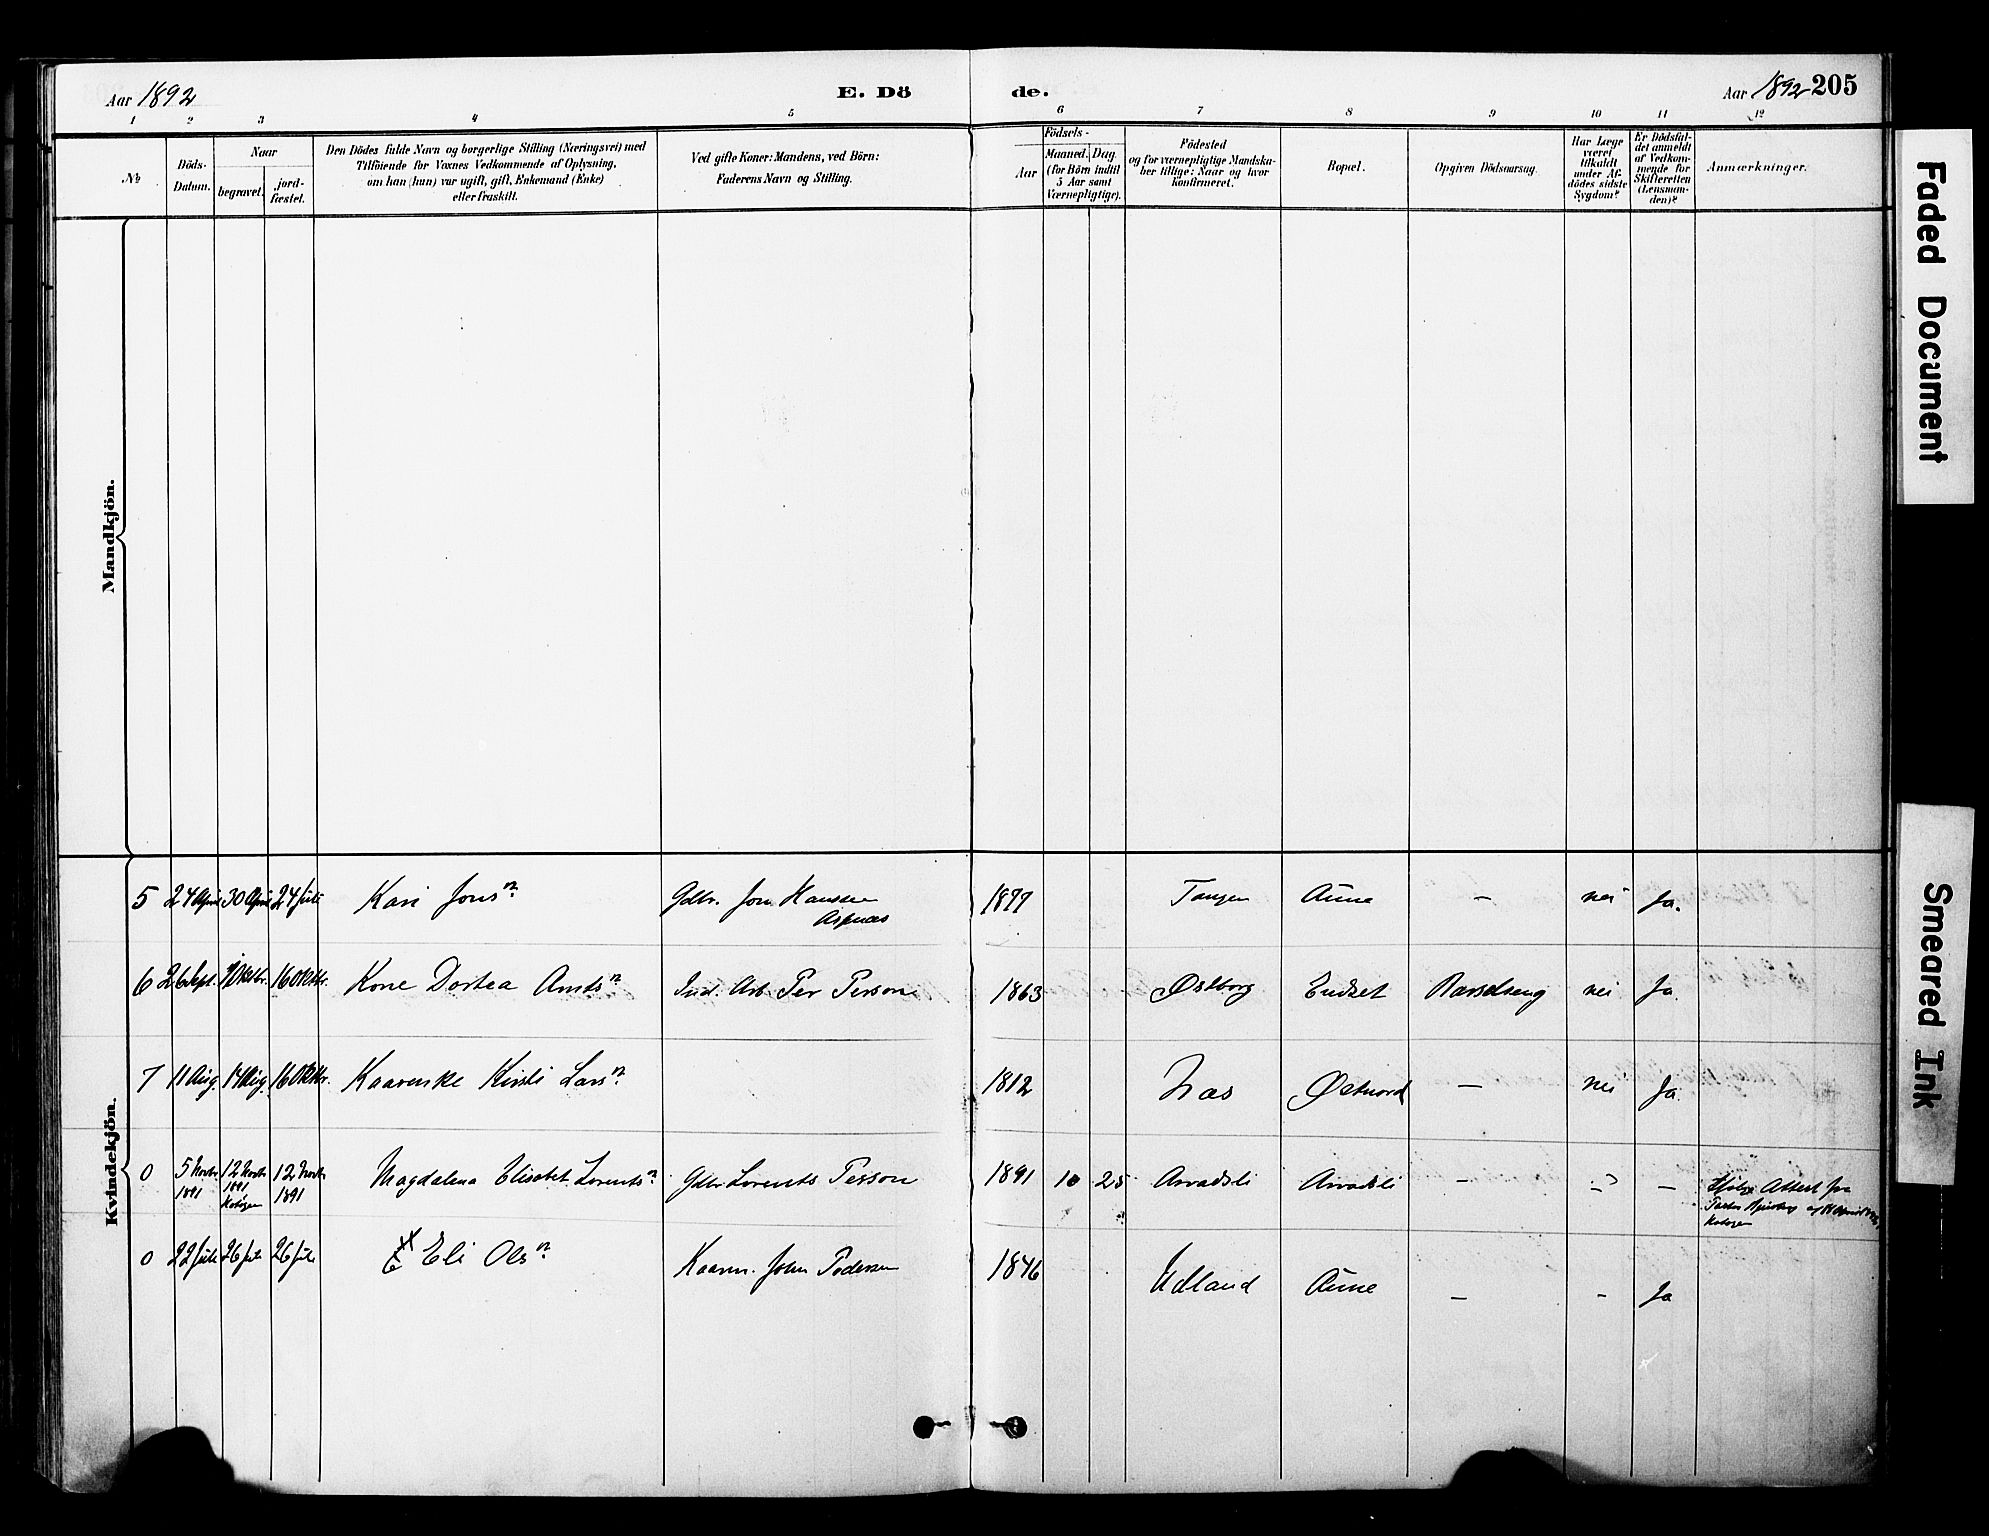 Aar 1892
E. Dö
de.
Aar 1892 205
1 2 3 4 5 6 7 8 9 10 11 12
№
Döds-
Datum.
Naar
begravet.
jord-
fæstet.
Den Dödes fulde Navn og borgerlige Stilling (Næringsvei) med
Tilföiende for Voxnes Vedkommende af Oplysning,
om han (hun) var ugift, gift, Enkemand (Enke)
eller fraskilt.
Ved gifte Koner: Mandens, ved Börn:
Faderens Navn og Stilling.
Födsels-
Aar
Maaned. Dag
(for Börn indtil
5 Aar samt
Værnepligtige).
Födested
og for værnepligtige Mandska-
ber tillige: Naar og hvor
Konfirmeret.
Bopæl.
Opgiven Dödsaarsag.
Har Læge
været
tilkaldt
under Af-
dödes sidste
Sygdom?
Er Dödsfal-
det anmeldt
af Vedkom-
mende for
Skifteretten
(Lensman-
den)?
Anmærkninger.
Mandkjön.
Kvindekjön.
5 24 April 30 April 24 Juli Kari Jonsn. Gdbr. Jon Hanssen 1877 Tangen Aune — nei Ja.
Aspnæs
6 26 Sept. Oktbr. 16 Oktbr. Kone Dortea Arntsn. Ind. Arb. Per Persson 1863 Østborg Endset Barselseng nei Ja.
7 11 Aug. 14 Aug. 16 Oktbr. Kaarenke Kirsti Larsn. 1812 Østnord — nei Ja.
0 5 Novbr. 12 Novbr. 12 Novbr. Magdalena Elisabet Lorentsn. Gdbr. Lorents Persson 1891 10 25 Arvadsli Arvadsli — — —
1891 1891 1891
Attest fra
0 22 Juli 26 Juli 26 Juli Eli Olsn. Kaarm. John Pedersen 1846 Udland Aune — - Ja
Faded Document
Smeared Ink